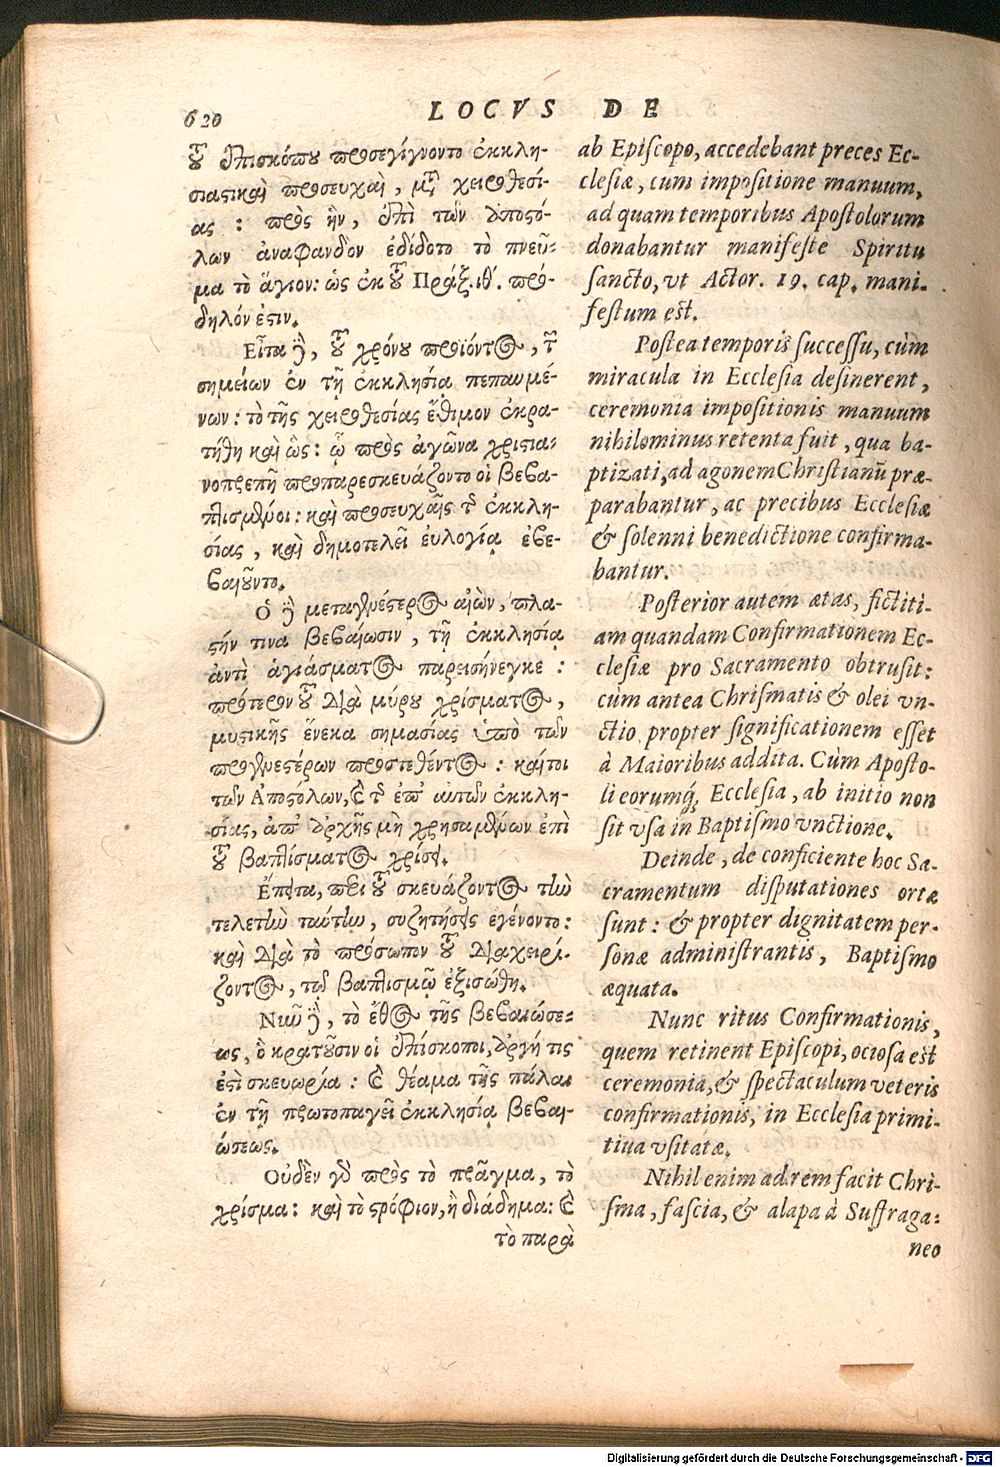 620
LOCVS DE
τοῦ ἐπισκόπου προσεγίγνοντο ἐκκλη-
σιαστικαὶ προσευχαὶ, μετὰ χειροθεσί-
ας : πρὸς ἣν, ἐπὶ τῶν ἀποστό-
λων ἀναφανδὸν ἐδίδοτο τὸ πνεῦ-
μα τὸ ἅγιον: ὡς ἐκ τοῦ Πράξ. ιθ΄. πρό-
δηλόν ἐστιν.
Εἶτα δὲ, τοῦ χρόνου προϊόντος, τῶν
σημείων ἐν τῇ ἐκκλησίᾳ πεπαυμέ-
νων: τὸ τῆς χειροθεσίας ἔθιμον ἐκρα-
τήθη καὶ ὣς: ᾧ πρὸς ἀγῶνα χριστια-
νοπρεπῆ προπαρεσκευάζοντο οἱ βεβα-
πτισμένοι: καὶ προσευχαῖς τῆς ἐκκλη-
σίας, καὶ δημοτελεῖ ευλογίᾳ ἐβε-
βαιοῦντο.
Ὁ δὲ μεταγενέστερος αἰὼν, πλα-
στήν τινα βεβαίωσιν, τῇ ἐκκλησίᾳ
ἀντὶ ἁγιάσματος παρεισήνεγκε :
πρότερον τοῦ διὰ μύρου χρίσματος,
μυστικῆς ἕνεκα σημασίας ὑπὸ τῶν
προγενεστέρων προστεθέντος : καίτοι
τῶν Ἀποστόλων, καὶ τῆς ἐπ' αὐτῶν ἐκκλη-
σίας, ἀπ' ἀρχῆς μὴ χρησαμένων ἐπὶ
τοῦ βαπτίσματος χρίσει.
Ἔπειτα, περὶ τοῦ σκευάζοντος τὴν
τελετὴν ταύτην, συζητήσεις ἐγένοντο:
καὶ διὰ τὸ πρόσωπον τοῦ διαχειρί-
ζοντος, τῷ βαπτισμῷ ἐξισώθη.
Νῦν δὲ, τὸ ἔθος τῆς βεβαιώσε-
ως, ὃ κρατοῦσιν οἱ ἐπίσκοποι, ἀργή τις
ἐστὶ σκευωρία : καὶ θέαμα τῆς πάλαι
ἐν τῇ πρωτοπαγεῖ ἐκκλησίᾳ βεβαι-
ώσεως.
Οὐδὲν γὰρ πρὸς τὸ πρᾶγμα, τὸ
χρίσμα: καὶ τὸ στρόφιον, ἢ διάδημα: καὶ
τὸ παρὰ
ab Episcopo, accedebant preces Ec-
clesiæ, cum impositione manuum,
ad quam temporibus Apostolorum
donabantur manifeste Spiritu
sancto, vt Actor. 19. cap. mani-
festum est.
Postea temporis successu, cùm
miracula in Ecclesia desinerent,
ceremonia impositionis manuum
nihilominus retenta fuit, qua ba-
ptizati, ad agonem Christianū præ-
parabantur, ac precibus Ecclesiæ
& solenni benedictione confirma-
bantur.
Posterior autem ætas, fictiti-
am quandam Confirmationem Ec-
clesiæ pro Sacramento obtrusit:
cùm antea Chrismatis & olei vn-
ctio propter significationem esset
à Maioribus addita. Cùm Aposto-
li eorumq́; Ecclesia, ab initio non
sit vsa in Baptismo vnctione.
Deinde, de conficiente hoc Sa-
cramentum disputationes ortæ
sunt: & propter dignitatem per-
sonæ administrantis, Baptismo
æquata.
Nunc ritus Confirmationis,
quem retinent Episcopi, ociosa est
ceremonia, & spectaculum veteris
confirmationis, in Ecclesia primi-
tiua vsitatæ.
Nihil enim ad rem facit Chri-
sma, fascia, & alapa à Suffraga-
neo
Digitalisierung gefördert durch die Deutsche Forschungsgemeinschaft - DFG